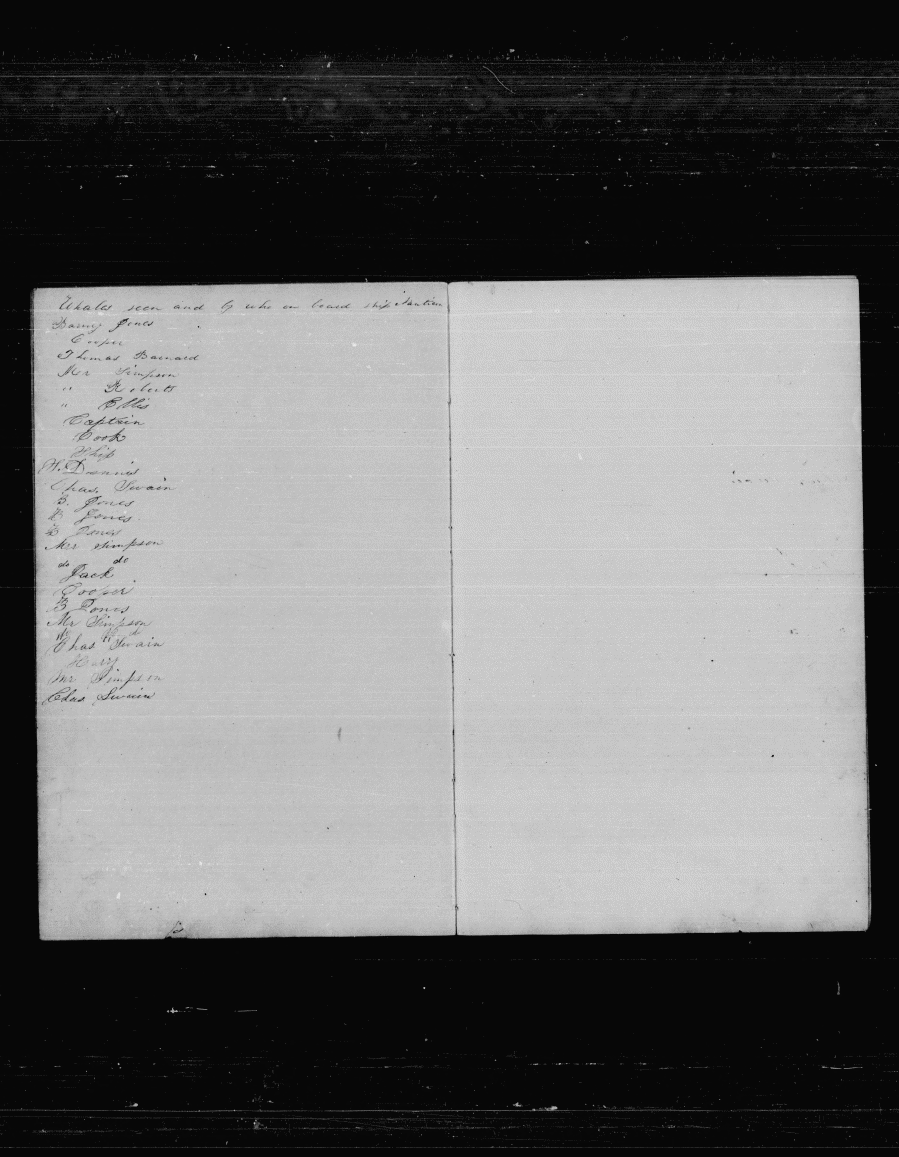 Whales seen and by who on board ship
Barny Jones
Cooper
Thomas Barnard
Mr Simpson
" Roberts
" Ellis
Captain
Cook
Ship
Chas. Swain
B. Jones
B Jones
B Jones
Mr Simpson
do do
Jack
Cooper
B Jones
Mr Simpson
Chas Swain
Mr Simpson
Chas Swain